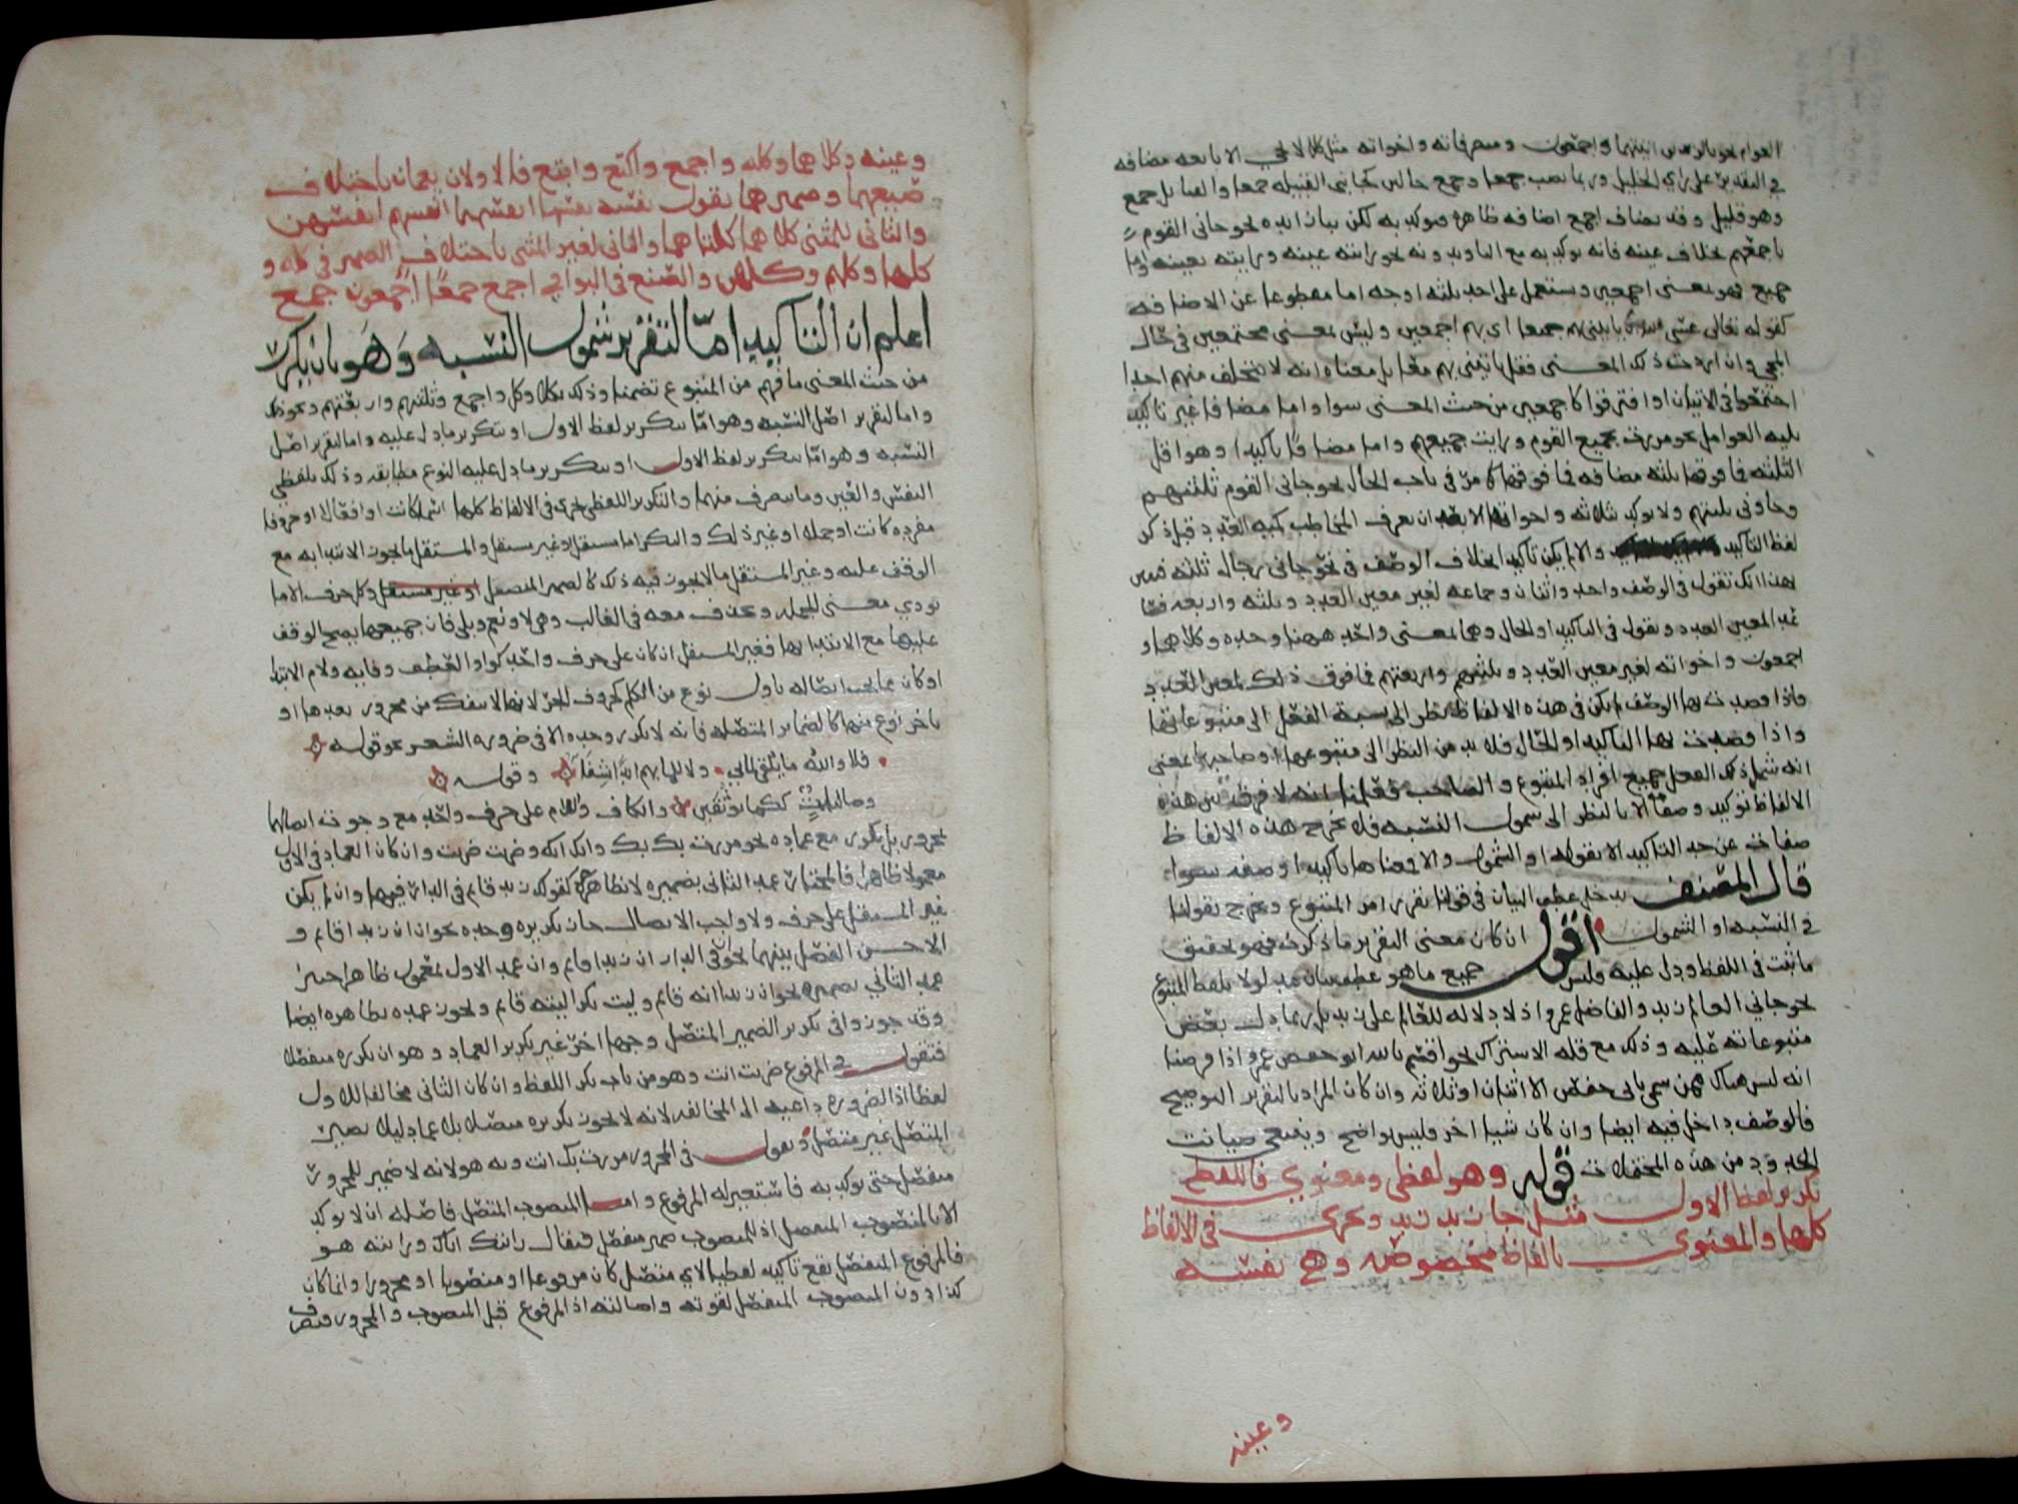 العوامل نحو بالرجلين اثنيهما واجمعون ومتصرفاته واخواته مثل كل لا تجي الا تابعه مضافه
في التقدير على راي الخليل وربما نصب جمعا وجمع حالين كجاني القبيله جمعا والقبائل جمع
وهو قليل وقد يضاف اجمع اضافه ظاهره فيوكد به لكن بباء زايده نحو جاني القوم
باجمعهم بخلاف عينه فانه يوكد به مع الباء وبدونه نحو رايته عينه ورايته بعينه واما
جميع فهو بمعنى اجمعين ويستعمل على احد ثلثه اوجه اما مقطوعا عن الاضافه
كقوله تعالى عسى ان ياتيني بهم جميعا اي بهم اجمعين وليس بمعنى مجتمعين في حال
المجي وان اردت ذلك المعنى فقل ياتيني بهم معا بل معناه انه لا يتخلف منهم احدا
اجتمعوا في الاتيان او افترقوا كاجمعين من حيث المعنى سوا واما مضافا غير تاكيد
يليه العوامل نحو مررت بجميع القوم ورايت جميعهم واما مضافا تاكيدا وهو اقل
الثلثه فما فوقها ثلثه مضافه فما فوقها كما مر في باب الحال نحو جاني القوم ثلثتهم
وجاوني ثلثتهم ولا يوكد بثلاثه واخواتها الا بعد ان يعرف المخاطب كميه العدد قبل ذكر
لفظ التاكيد والا لم يكن تاكيدا بخلاف الوصف في نحو جاني رجال ثلثه فمن
هذا انك تقول في الوصف واحد واثنان وجماعه لغير معين العدد وثلثه واربعه فما
فوقه لمعين العدد وتقول في التاكيد او الحال وهما بمعنى واحد ههنا وحده وكلاهما و
اجمعون واخواته لغير معين العدد وثلثتهم واربعتهم فما فوق ذلك لمعين العدد
واذا قصدت بها الوصف لم يكن في هذه الالفاظ نظر الى نسبة الفعل الى متبوعاتها
واذا قصدت بها التاكيد او الحال فلا بد من النظر الى متبوعها او صاحبها بمعنى
انه شمل ذلك الفعل جميع افراد المتبوع والصاحب فعلمنا انه لا فرق بين هذه
الالفاظ توكيدا وصفا الا بالنظر الى شمول النسبه فلا تخرج هذه الالفاظ
صفات عن حد التاكيد الا بقوله او الشمول والا فمعناها تاكيدا وصفه سواء
قال المصنف يدخل عطف البيان في قولنا تقرير امر المتبوع ويخرج بقولنا
في النسبه او الشمول اقول ان كان معنى التقرير ما ذكرت فهو تحقيق
ما ثبت في اللفظ ودل عليه وليس جميع ما هو عطف بيان مدلولا بلفظ المتبوع
نحو جاني العالم زيد والفاضل عمرو اذ لا دلاله للعالم على زيد بل ربما دل بعض
متبوعاته عليه وذلك مع قلة الاشتراك نحو اقسم بالله ابو حفص عمر اذا فرضنا
انه ليس هناك ممن سمي بابي حفص الا اثنان او ثلاثه وان كان المراد بالتقرير التوضيح
فالوصف داخل فيه ايضا وان كان شيا اخر فليس بواضح وينبغي صيانت
الحدود من هذه المحتملات قوله وهو لفظي ومعنوي فاللفظي
تكرير لفظ الاول مثل جا زيد زيد ويجري في الالفاظ
كلها والمعنوي بالفاظ مخصوصه وهي نفسه
وعينه
وعينه وكلاهما وكله واجمع واكتع وابتع فالاولان يعمان باختلاف
صيغهما وضميرهما تقول نفسه نفسها انفسهما انفسهم انفسهن
والثاني للمثنى كلاهما كلتاهما والباقي لغير المثنى باختلاف الضمير في كله و
كلها وكلهم وكلهن والصيغ في البواقي اجمع جمعا اجمعون جمع
اعلم ان التاكيد اما لتقرير شمول النسبه وهو بان يكرر
من حيث المعنى ما فهم من المتبوع تضمنا وذلك بكلا وكل واجمع وثلثتهم واربعتهم ونحو ذلك
واما لتقرير اصل النسبه وهو اما بتكرير لفظ الاول او بتكرير ما دل عليه واما لتقرير اصل
النسبه وهو اما بتكرير لفظ الاول او بتكرير ما دل عليه النوع مطابقه وذلك بلفظي
النفس والعين وما يتصرف منهما والتكرير اللفظي يجري في الالفاظ كلها اسما كانت او افعالا او حروفا
مفرده كانت او جمله او غير ذلك والمكرر اما مستقل او غير مستقل والمستقل ما يجوز الابتدا به مع
الوقف عليه وغير المستقل ما لا يجوز فيه ذلك كالضمير المتصل او غير مستقل وكل حرف الا ما
يودي معنى الجمله ويحذف معه في الغالب وهي لا ونعم وبلى فان جميعها يصح الوقف
عليها مع الابتدا بها فغير المستقل ان كان على حرف واحد كواو العطف وفايه ولام الابتدا
او كان مما يجب اتصاله باول نوع من الكلم كحروف الجر لانها لا ينفك من مجرور بعدها او
باخر نوع منها كالضماير المتصله فانه لا يكرر وحده الا في ضروره الشعر نحو قوله
فلا والله ما يلفى لما بي ولا للما بهم ابدا شفا وقوله
وصاليات ككما يوثفين والكاف واللام على حرف واحد مع وجوب اتصالها
بمجرور بل يكرر مع عماده نحو مررت بك بك وانك انك وضربت ضربت وان كان العماد في الاول
معمولا ظاهرا فالمختار عمد الثاني بضميره لا بظاهره كقولك زيد قايم في الدار فيها وان لم يكن
غير المستقل على حرف ولا واجب الاتصال جاز تكريره وحده نحو ان ان زيدا قايم و
الاحسن الفصل بينهما نحو ان في الدار ان زيدا قايم وان عمد الاول بمعمول ظاهر اختير
عمد الثاني بضميره نحو ان زيدا انه قايم وليت بكرا ليته قايم ويجوز عمده بظاهره ايضا
وقد جوزوا في تكرير الضمير المتصل وجها اخر غير تكرير العماد وهو ان تكرره منفصلا
فتقول في المرفوع ضربت انت وهو من باب تكرر اللفظ وان كان الثاني مخالفا للاول
لفظا اذ الضروره داعيه الى المخالفه لانه لا يجوز تكريره متصلا بلا عماد ليلا يصير
المتصل غير متصل وتقول في المجرور مررت بك انت وبه هو لانه لا ضمير للمجرور
منفصل حتى يوكد به فاستعير له المرفوع واما المنصوب المتصل فاصله ان لا يوكد
الا بالمنصوب المنفصل اذ للمنصوب ضمير منفصل فيقال رايتك اياك ورايته هو
فالمرفوع المنفصل يقع تاكيدا لفظيا لاي متصل كان مرفوعا او منصوبا او مجرورا وانما كان
كذا دون المنصوب المنفصل لقوته واصالته اذ المرفوع قبل المنصوب والمجرور فتصرف